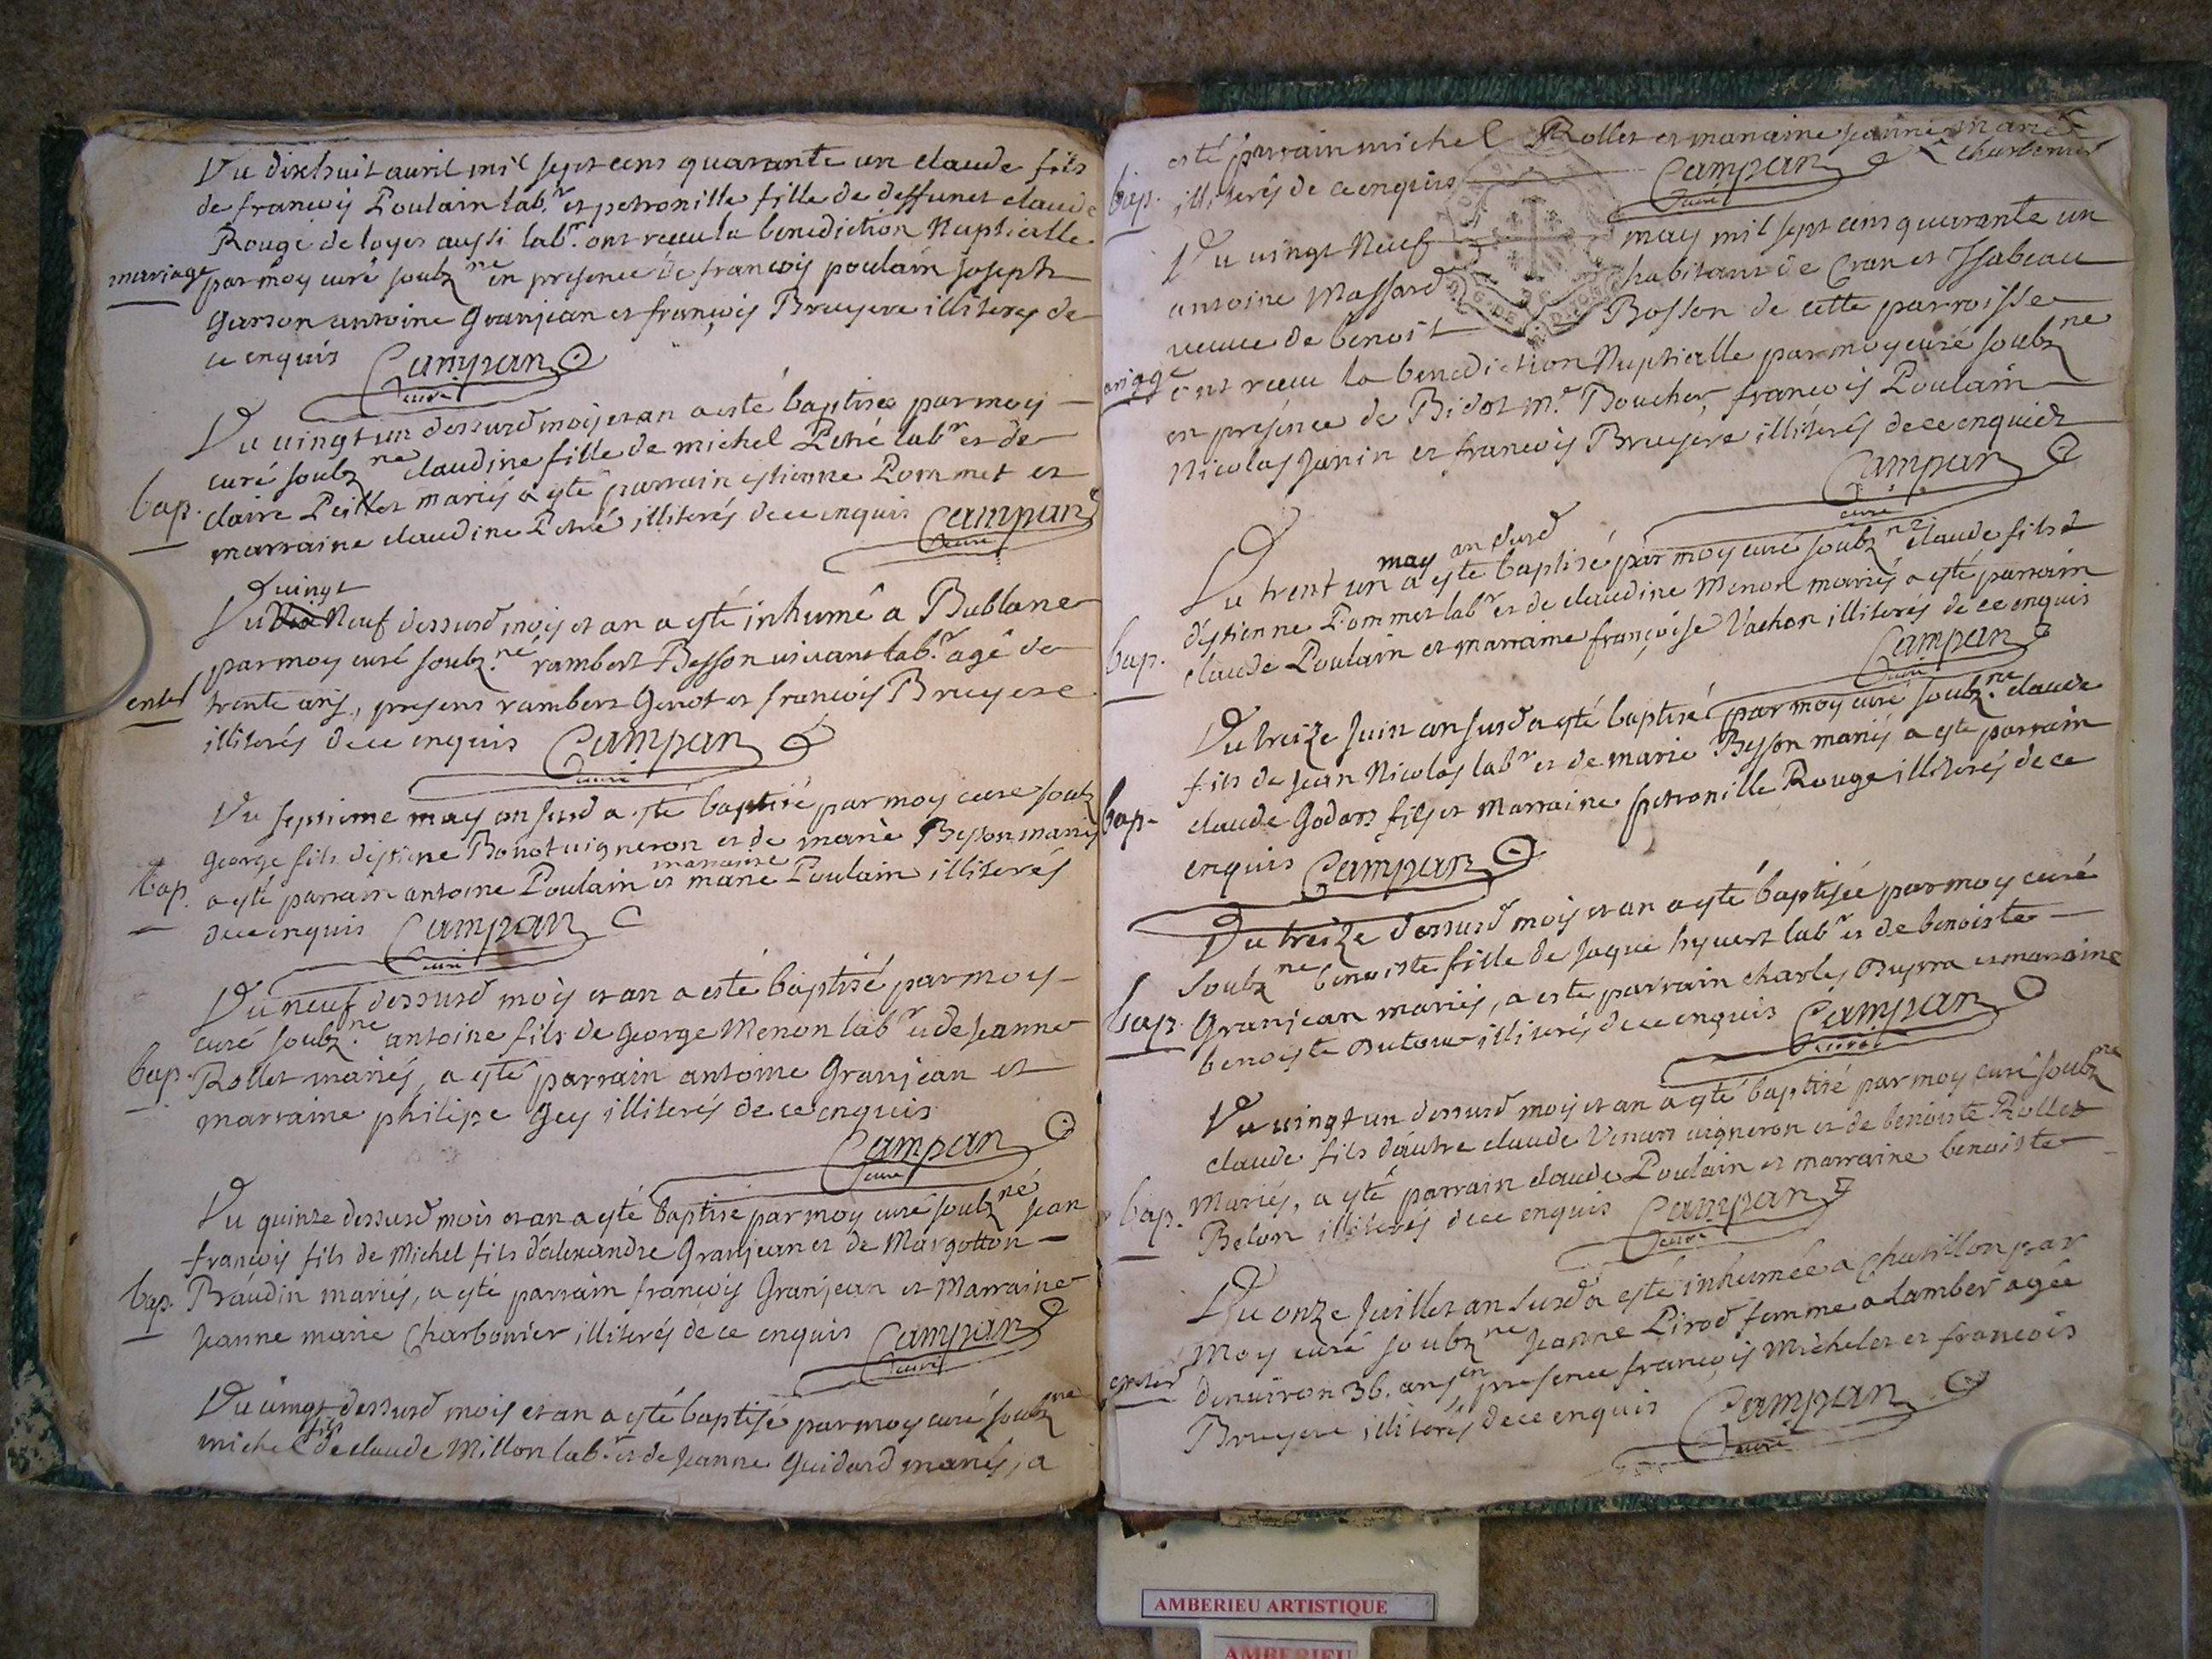 Du dixhuit auril mil sept cens quarante un claude fils
de francois Poulain lab.r et petronille fille de deffunct claude
Rouge de loyes aussi lab.r ont receu la benediction Nuptialle
mariage par moy curé soubz.ne en presence de francois poulain joseph
Garson antoine Granjean et françois Bruyere illiterés de
ce enquis Campan
curé
Du uingt un dessusd mois et an a esté baptisee par moy
curé soubz.ne claudine fille de michel Petré lab.r et de
bap. claire Peillet mariés a esté parrain estienne Pommet et
marraine claudine Petré illiterés de ce enquis Campan
curé
uingt
Du Neuf dessusd mois et an a esté inhumé a Bublane
par moy curé soubz.né rambert Besson uiuant lab.r agé de
enter trente ans, presens rambert Genot et francois Bruyere
illiterés de ce enquis Campan
curé
Du septieme may an susd a esté baptisé par moy curé soubz
George fils destiene Bonot uigneron et de marie Besson mariés
marraine
bap. a esté parrain antoine Poulain et marie Poulain illiterés
de ce enquis Campan
curé
Du neuf dessusd mois et an a esté baptisé par moy
curé soubz.ne antoine fils de George Menon lab.r et de Jeanne
bap. Rollet mariés, a esté parrain antoine Granjean et
marraine philipe Gey illiterés de ce enquis
Campan
curé
Du quinze dessusd mois et an a esté baptisé par moy curé soubz.né Jean
françois fils de Michel fils d'alexandre Granjean et de Margotton
bap. Baudin mariés, a esté parrain françois Granjean et Marraine
Jeanne marie Charbonier illiterés de ce enquis Campan
curé
Du uingt dessusd mois et an a esté baptisé par moy curé soubz.ne
fils
michel de claude Millon lab.r et de Jeanne Guidard mariés, a
esté parrain michel Rollet et marraine jeanne marie
charbonier
bap. illiterés de ce enquis Campan
curé
Du uingt Neuf may mil sept cens quarante un
antoine Massard habitant de Cran et Isabeau
ueuue de benoit Bosson de cette parroisse
ariage ont receu la benediction Nuptialle par moy curé soubz.ne
en présence de Bidot m.e Boucher, françois Poulain
Nicolas Janin et francois Bruyere illiterés de ce enquis
Campan
curé
may an susd
Du trent un a esté baptisé par moy curé soubz.ne claude fils
d'estienne Pommet lab.r et de claudine Menon mariés a esté parrain
bap. claude Poulain et marraine françoise Vachon illiterés de ce enquis
Campan
curé
Du treize Juin an susd a esté baptisé par moy curé soubz.ne claude
fils de Jean Nicolas lab.r et de marie Besson mariés a esté parrain
bap. claude Godars fils et Marraine petronille Rouge illiterés de ce
enquis Campan
Du treize dessusd mois et an a esté baptisée par moy curé
soubz.ne benoiste fille de Jaque hyuert lab.r et de benoiste
bap. Granjean mariés, a esté parrain charles Dupra et marraine
benoiste Dutour illiterés de ce enquis Campan
curé
Du uingt un dessusd mois et an a esté baptisé par moy curé soubz.ne
claude fils d'autre claude uigneron et de benoiste Rollet
bap. Mariés, a esté parrain claude Poulain et marraine benoiste
Belon illiterés de ce enquis Campan
curé
Du onze Juillet an susd a esté inhumée a chatillon par
moy curé soubz.ne Jeanne Pirod femme a lamber agée
en
enter denuiron 36. ans, presence françois Michelet et francois
Bruyere illiterés de ce enquis Campan
curé
AMBERIEU ARTISTIQUE
AMBERIEU